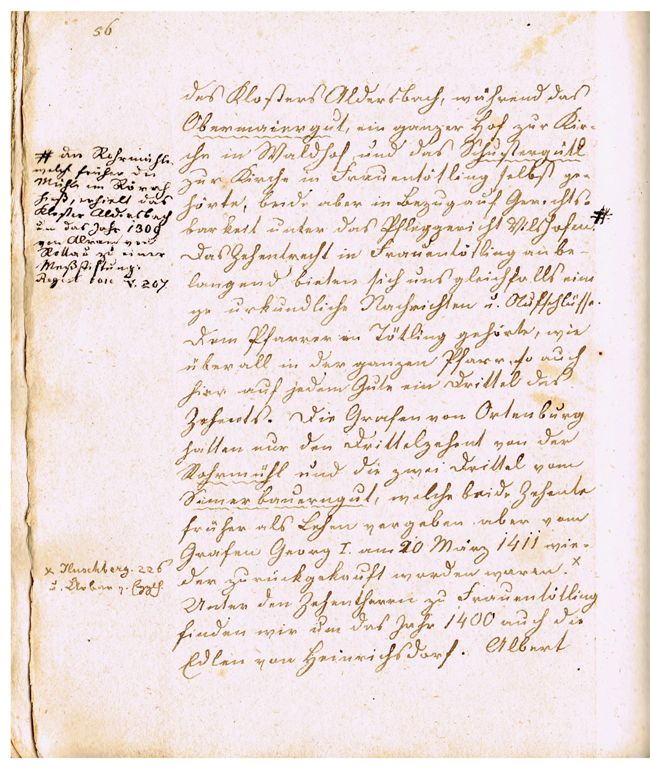 56
des Klosters Aldersbach, während das
Obermaiergut, ein ganzer Hof zur Kir-
che in Waldhof, und das Schustergütl
zur Kirche in Frauentötling selbst ge-
hörte, beide aber in Bezug auf Gerichts-
barkeit unter das Pfleggericht Vilshofen. #
Das Zehentrecht in Frauentötling anbe-
langend bieten sich uns gleichfalls eini
ge urkundliche Nachrichten u. Aufschlüsse.
Dem Pfarrer in Tötling gehörte, wie
überall in der ganzen Pfarr, so auch
hier auf jedem Gute ein Drittel des
Zehents. Die Grafen von Ortenburg
hatten nur den Drittelzehent von der
Rohrmühl und die zwei Drittel vom
Simerbauerngut, welche beide Zehente
früher als Lehen vergeben aber vom
Grafen Georg I. am 20 März 1411 wie-
der zurückgekauft worden waren. x
Unter den Zehentherrn zu Frauentötling
finden wir um das Jahr 1400 auch die
Edlen von Heinrichsdorf. Albert
# die Rohrmühle,
welche früher die
Mühle im Rörach
hieß, erhielt das
Kloster Aldersbach
um das Jahr 1300
von Alram von
Rottau zu einer
Meßstiftung.
Regest. boic V. 207
x Huschberg. 226
u.